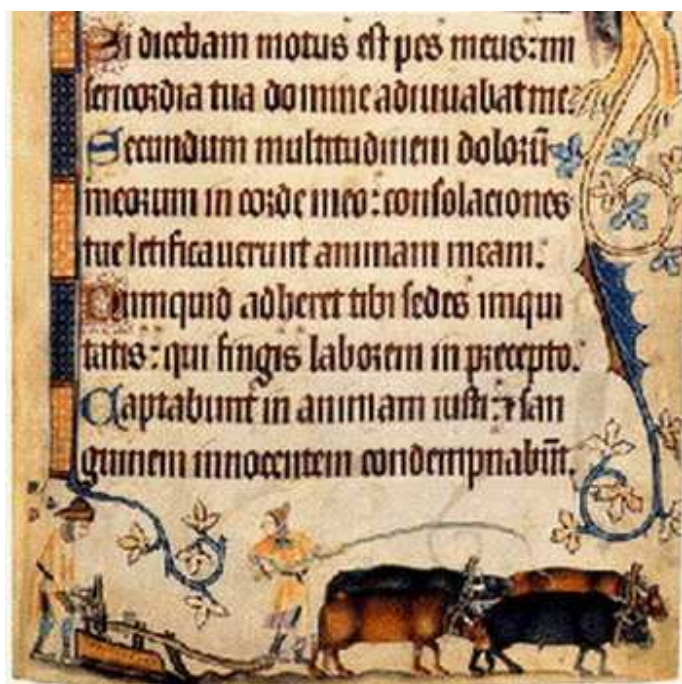 Si dicebam motus est pes meus: mi
sericordia tua domine adiuuabat me:
Secundum multitudinem dolorū
meorum in corde meo: consolaciones
tue letificauerunt animam meam.
Numquid adheret tibi sedes iniqui
tatis: qui fingis laborem in precepto.
Captabunt in animam iusti: ⁊ san
guinem innocentem condempnabūt.